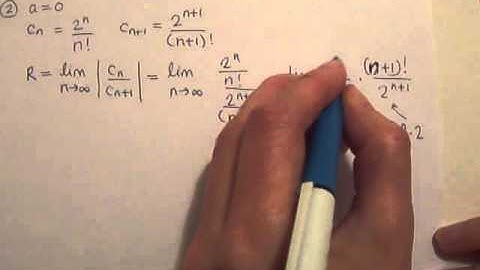 ② a=0
cₙ = 2ⁿ/n! cₙ₊₁ = 2ⁿ⁺¹/(n+1)!
R = lim n→∞ |cₙ/cₙ₊₁| = lim n→∞ 2ⁿ/n! · (n+1)!/2ⁿ⁺¹
· 2